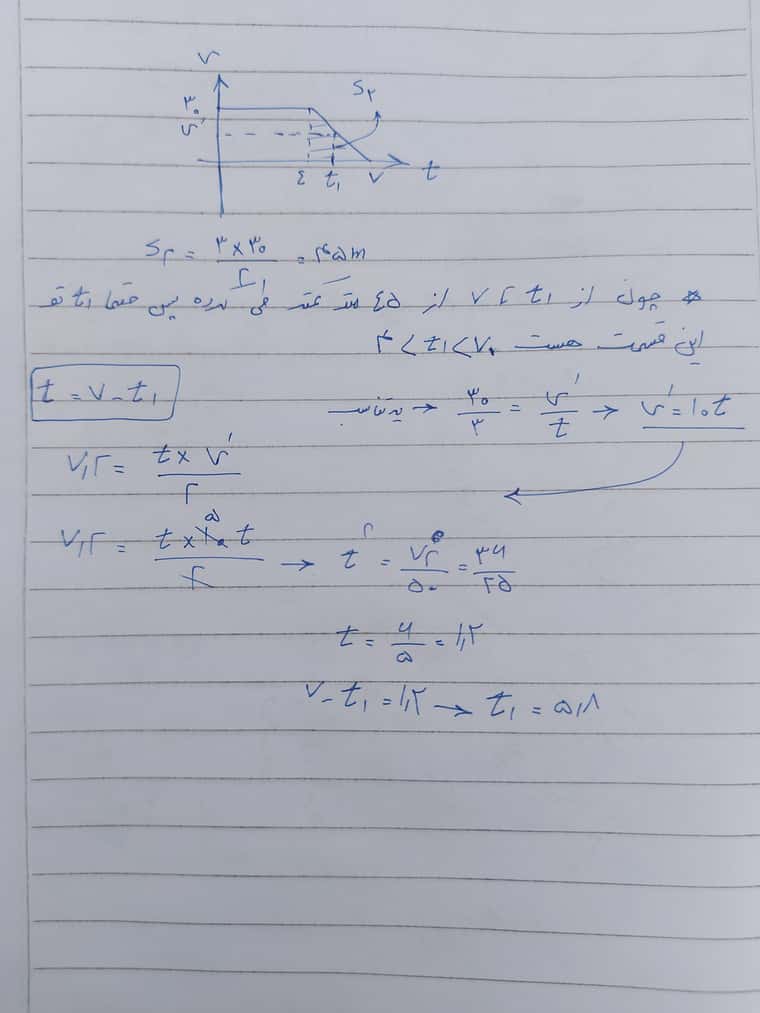 v
۳۰
v'
S۲
٤ t۱ ۷ t
S۲ = ۳ × ۳۰ / ۲ = ۴۵m
* چون از t۱ تا ۷ از ٤۵ متر کمتر طی کرده پس حتما t۱ تو
این قسمت هست ۴ < t۱ < ۷
t = ۷ - t۱
به تناسب → ۳۰ / ۳ = v' / t → v' = ۱۰t
۷,۲ = t × v' / ۲
۷,۲ = t × ۱۰ t / ۲ → t۲ = ۷۲ / ۵۰ = ۳۶ / ۲۵
۵
t = ۶ / ۵ = ۱,۲
۷ - t۱ = ۱,۲ → t۱ = ۵,۸